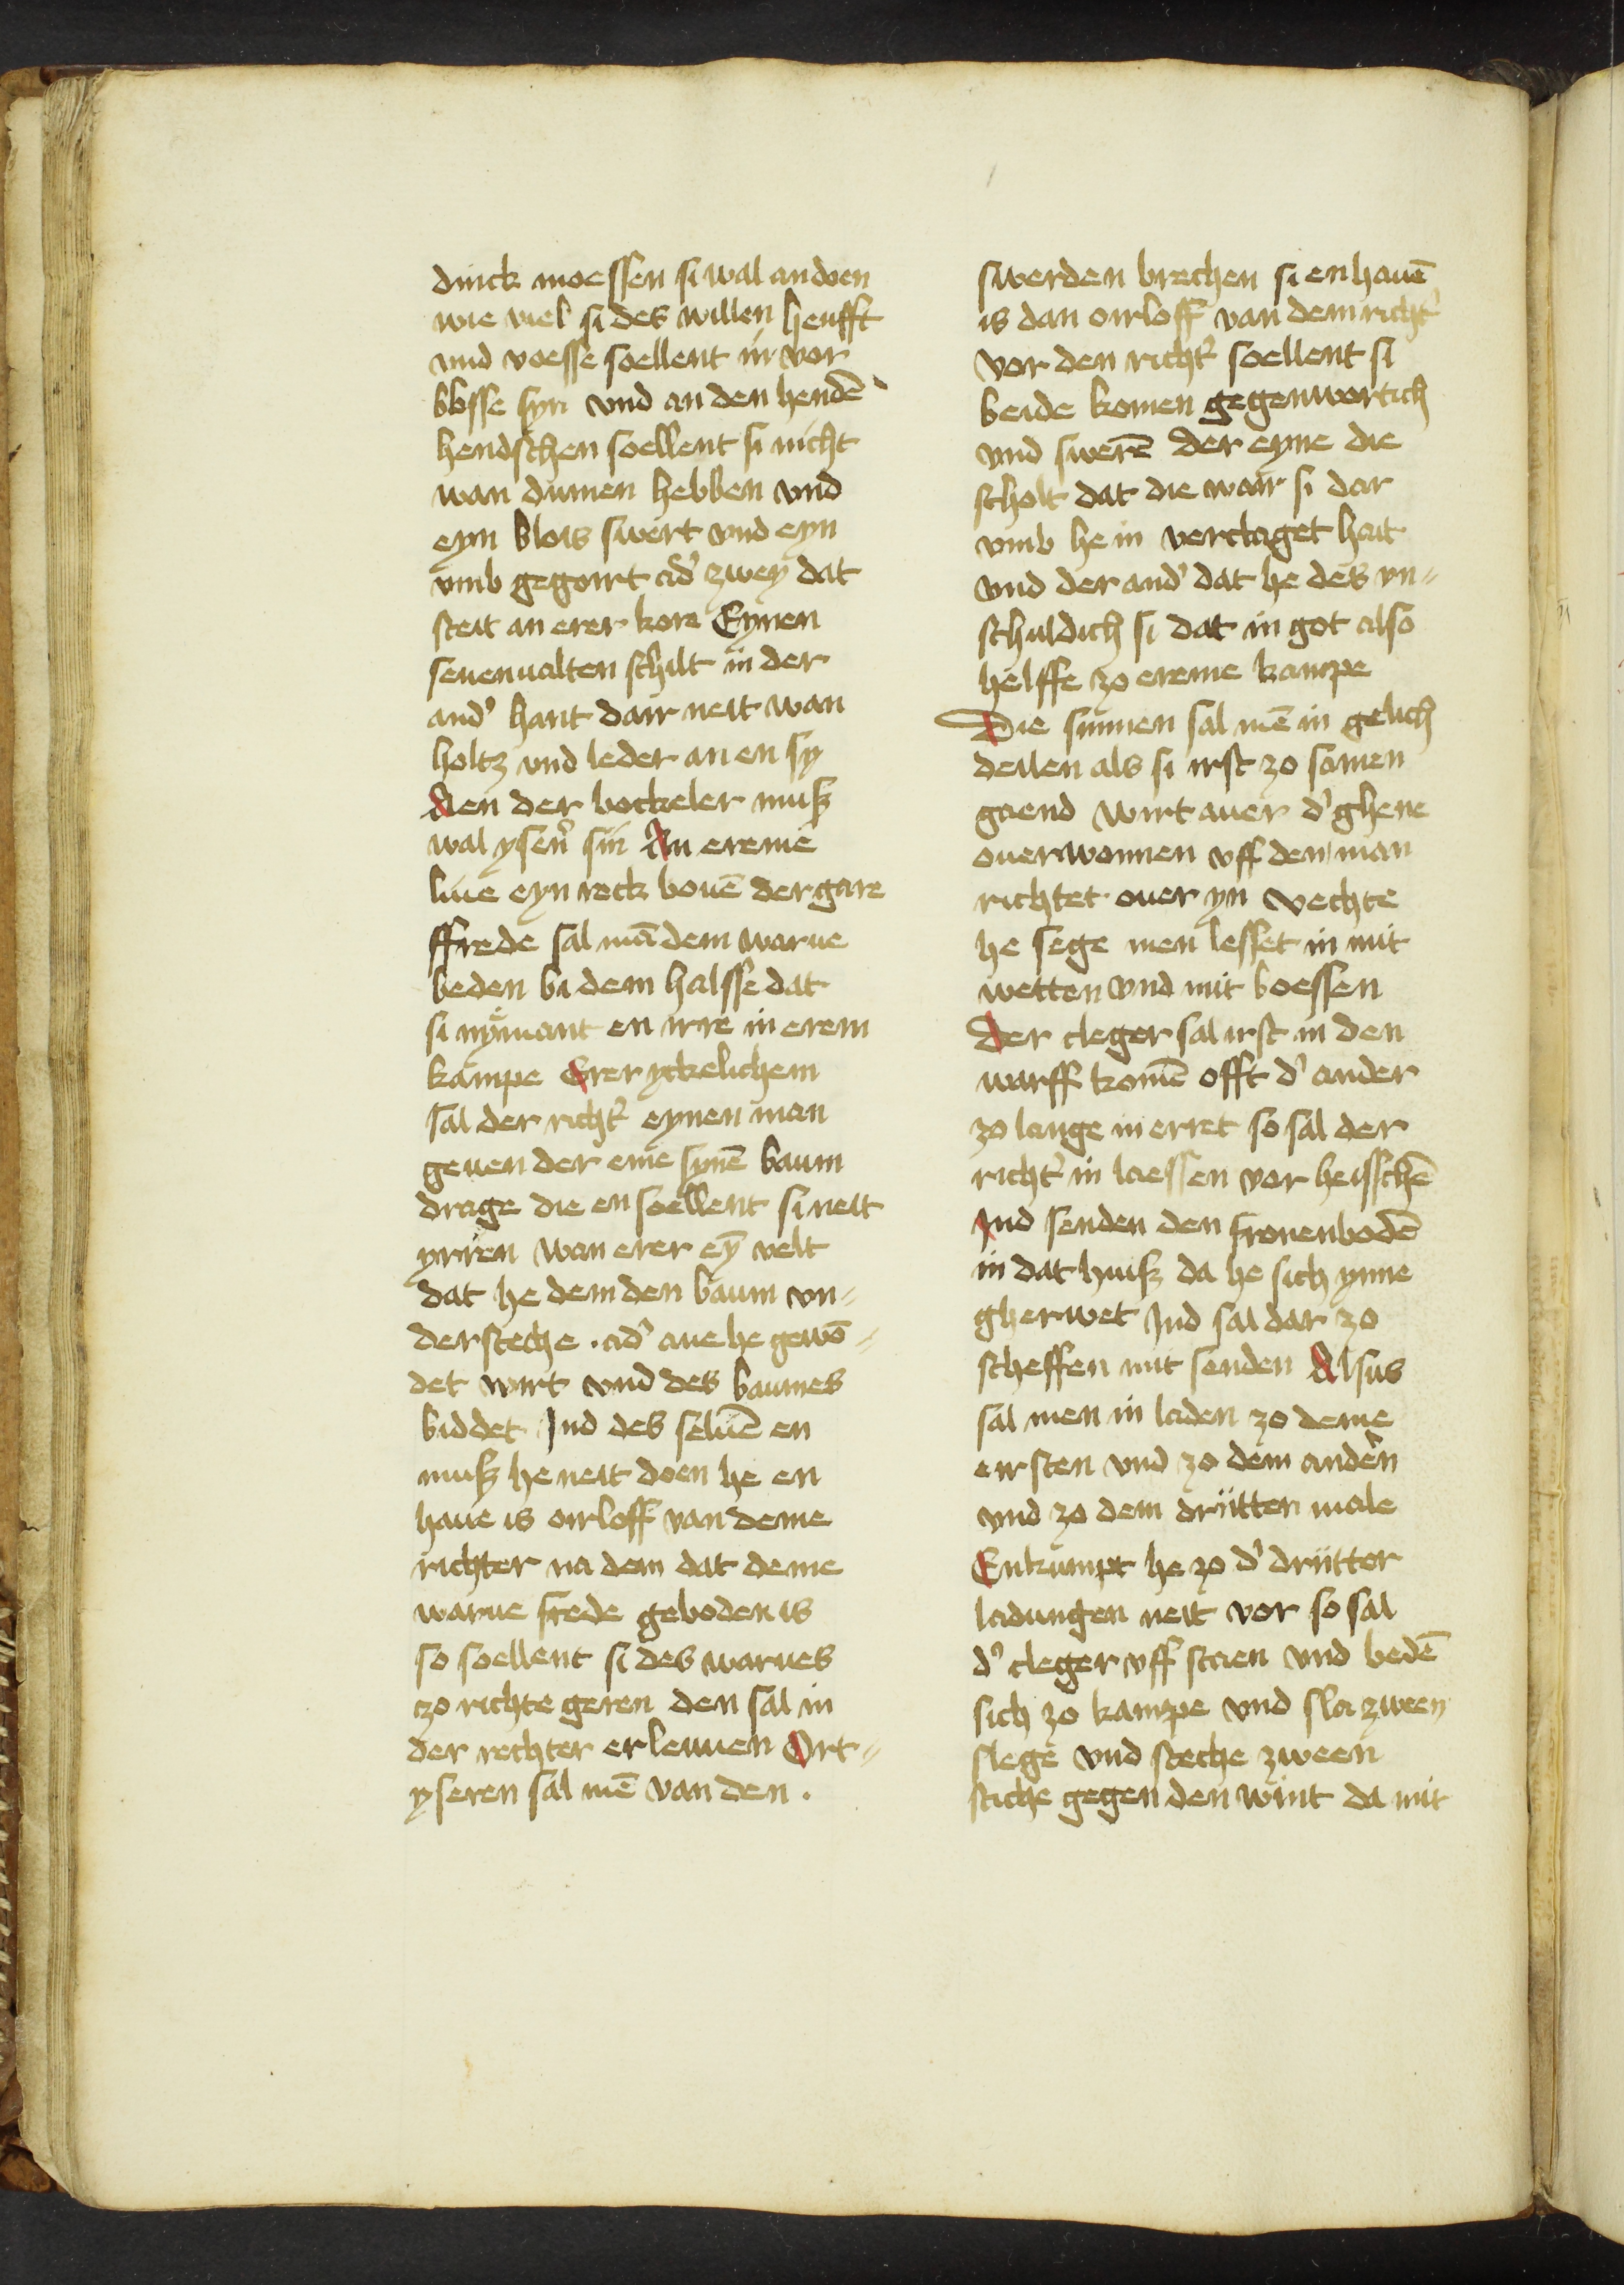 dinck moessen si wal andoen
wie viel si des willen heufft
vnd voesse soellent in vor
blosse syn vnd an den hendē
hendschen soellent si nicht
wan dumen hebben vnd
eyn blois swert vnd eyn
vmb gegoirt adˀ zwey dat
steit an erer kore Eynen
seuenualten schilt in der
andˀ hant dair neit wan
holtz vnd leder an en sy
Aen der bockeler musz
wal ysenˀ sin An ereme
liue eyn reck bouē der gare
ffrede sal mā dem warue
beden bi dem halsse dat
si nymant en irre in erem
kampe Erer yckelichem
sal der richtˀ eynen man
geuen der eme synē baum
drage die en soellent si neit
yrren wan erer eȳ velt
dat he dem den baum vn⸗
dersteche . adˀ aue he gewō⸗
det wirt vnd des baumes
biddet Ind des seluē en
musz he neit doen he en
haue is oirloff van deme
richter na dem dat deme
warue frede geboden is
so soellent si des warues
zo richte geren den sal in
der rechter erleuuen Ort⸗
yseren sal mē van den .
swerden brechen si en hauē
is dan oirloff van dem richtˀ
vor den richtˀ soellent si
beide komen gegenwortich
vnd swerē Der eyne die
scholt dat die wair si dar
vmb he in verclaget hait
vnd der andˀ dat he des vn⸗
schuldich si dat in got also
helffe zo ereme kampe
Die sunnen sal mē in gelich
deilen als si irst zo samen
gaend wirt auer dˀ ghene
ouerwonnen vff den man
richtet ouer yn vechte
he sege men lesset in mit
wetten vnd mit boessen
Der cleger sal irst in den
warff komē offt dˀ ander
zo lange in erret so sal der
richtˀ in laessen vor heisschē
Ind senden den fronenbodē
in dat huisz da he sich ynne
gherwet Ind sal dar zo
scheffen mit senden Alsus
sal men in laden zo deme
eirsten vnd zo dem andeˀn
vnd zo dem drütten male
Enkumpt he zo dˀ drütter
ladungen neit vor so sal
dˀ cleger vff staen vnd bedē
sich zo kampe vnd sla zween
slege vnd steche zween
stiche gegen den wint da mit